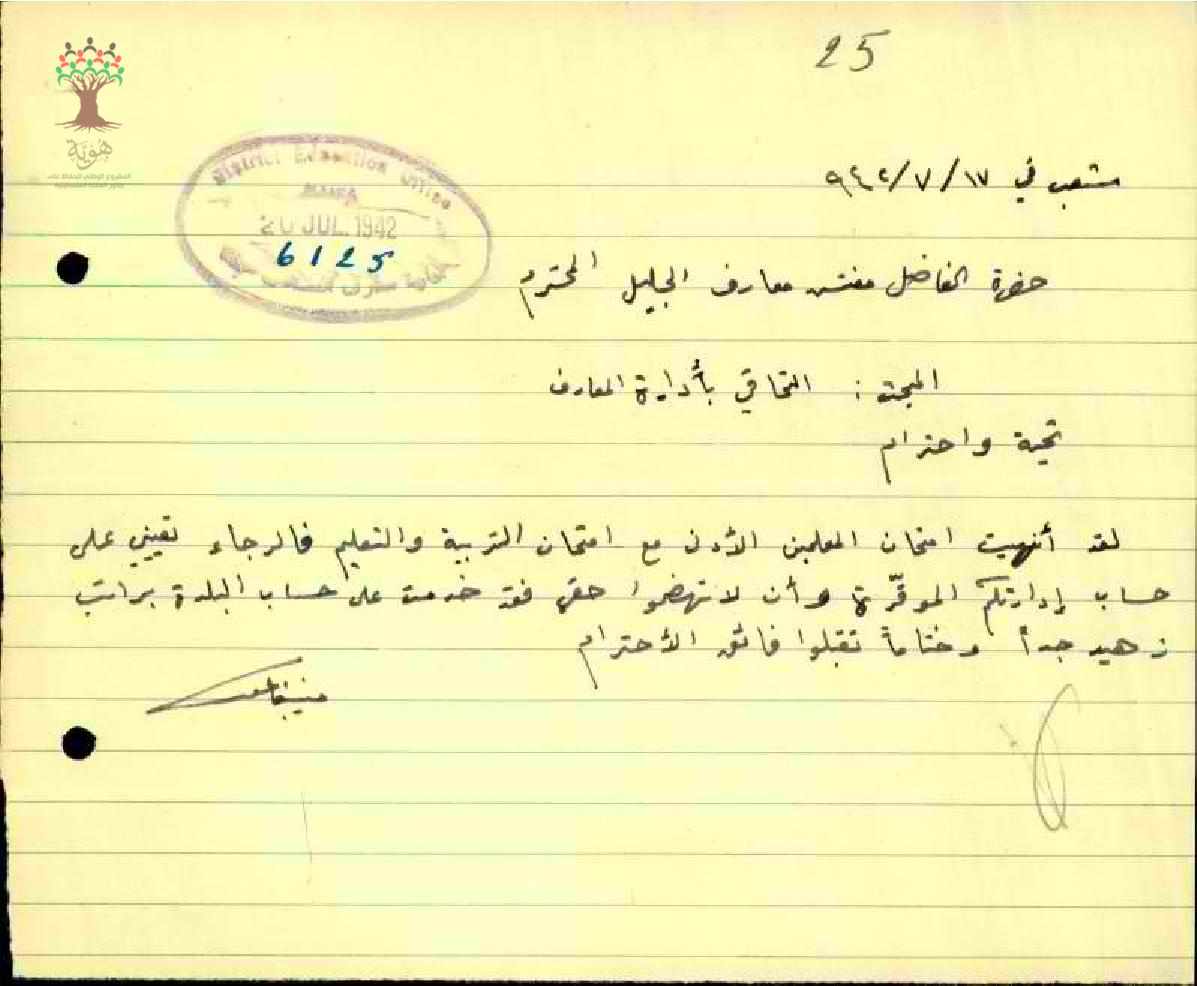 25
هوية
المشروع الوطني للحفاظ على
District Education Office
HAIFA
20 JUL. 1942
6125
مشعب في ١٧/٧/٩٤٢
حضرة الفاضل مفتش معارف الجليل المحترم
المبحث : التحاقي بأدارة المعارف
تحية واحترام
لقد أنهيت امتحان المعلمين الأدنى مع امتحان التربية والتعليم فالرجاء تعييني على
حساب إدارتكم الموقّرة وأن لا تهضموا حقي فقد خدمت على حساب البلدة براتب
زهيد جداً وختاماً تقبلوا فائق الأحترام